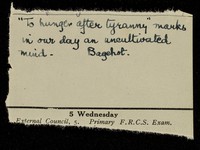 "To hunger after tyranny" marks
in our day an uncultivated
mind. Bagehot.
5 Wednesday
External Council, 5. Primary F.R.C.S. Exam.